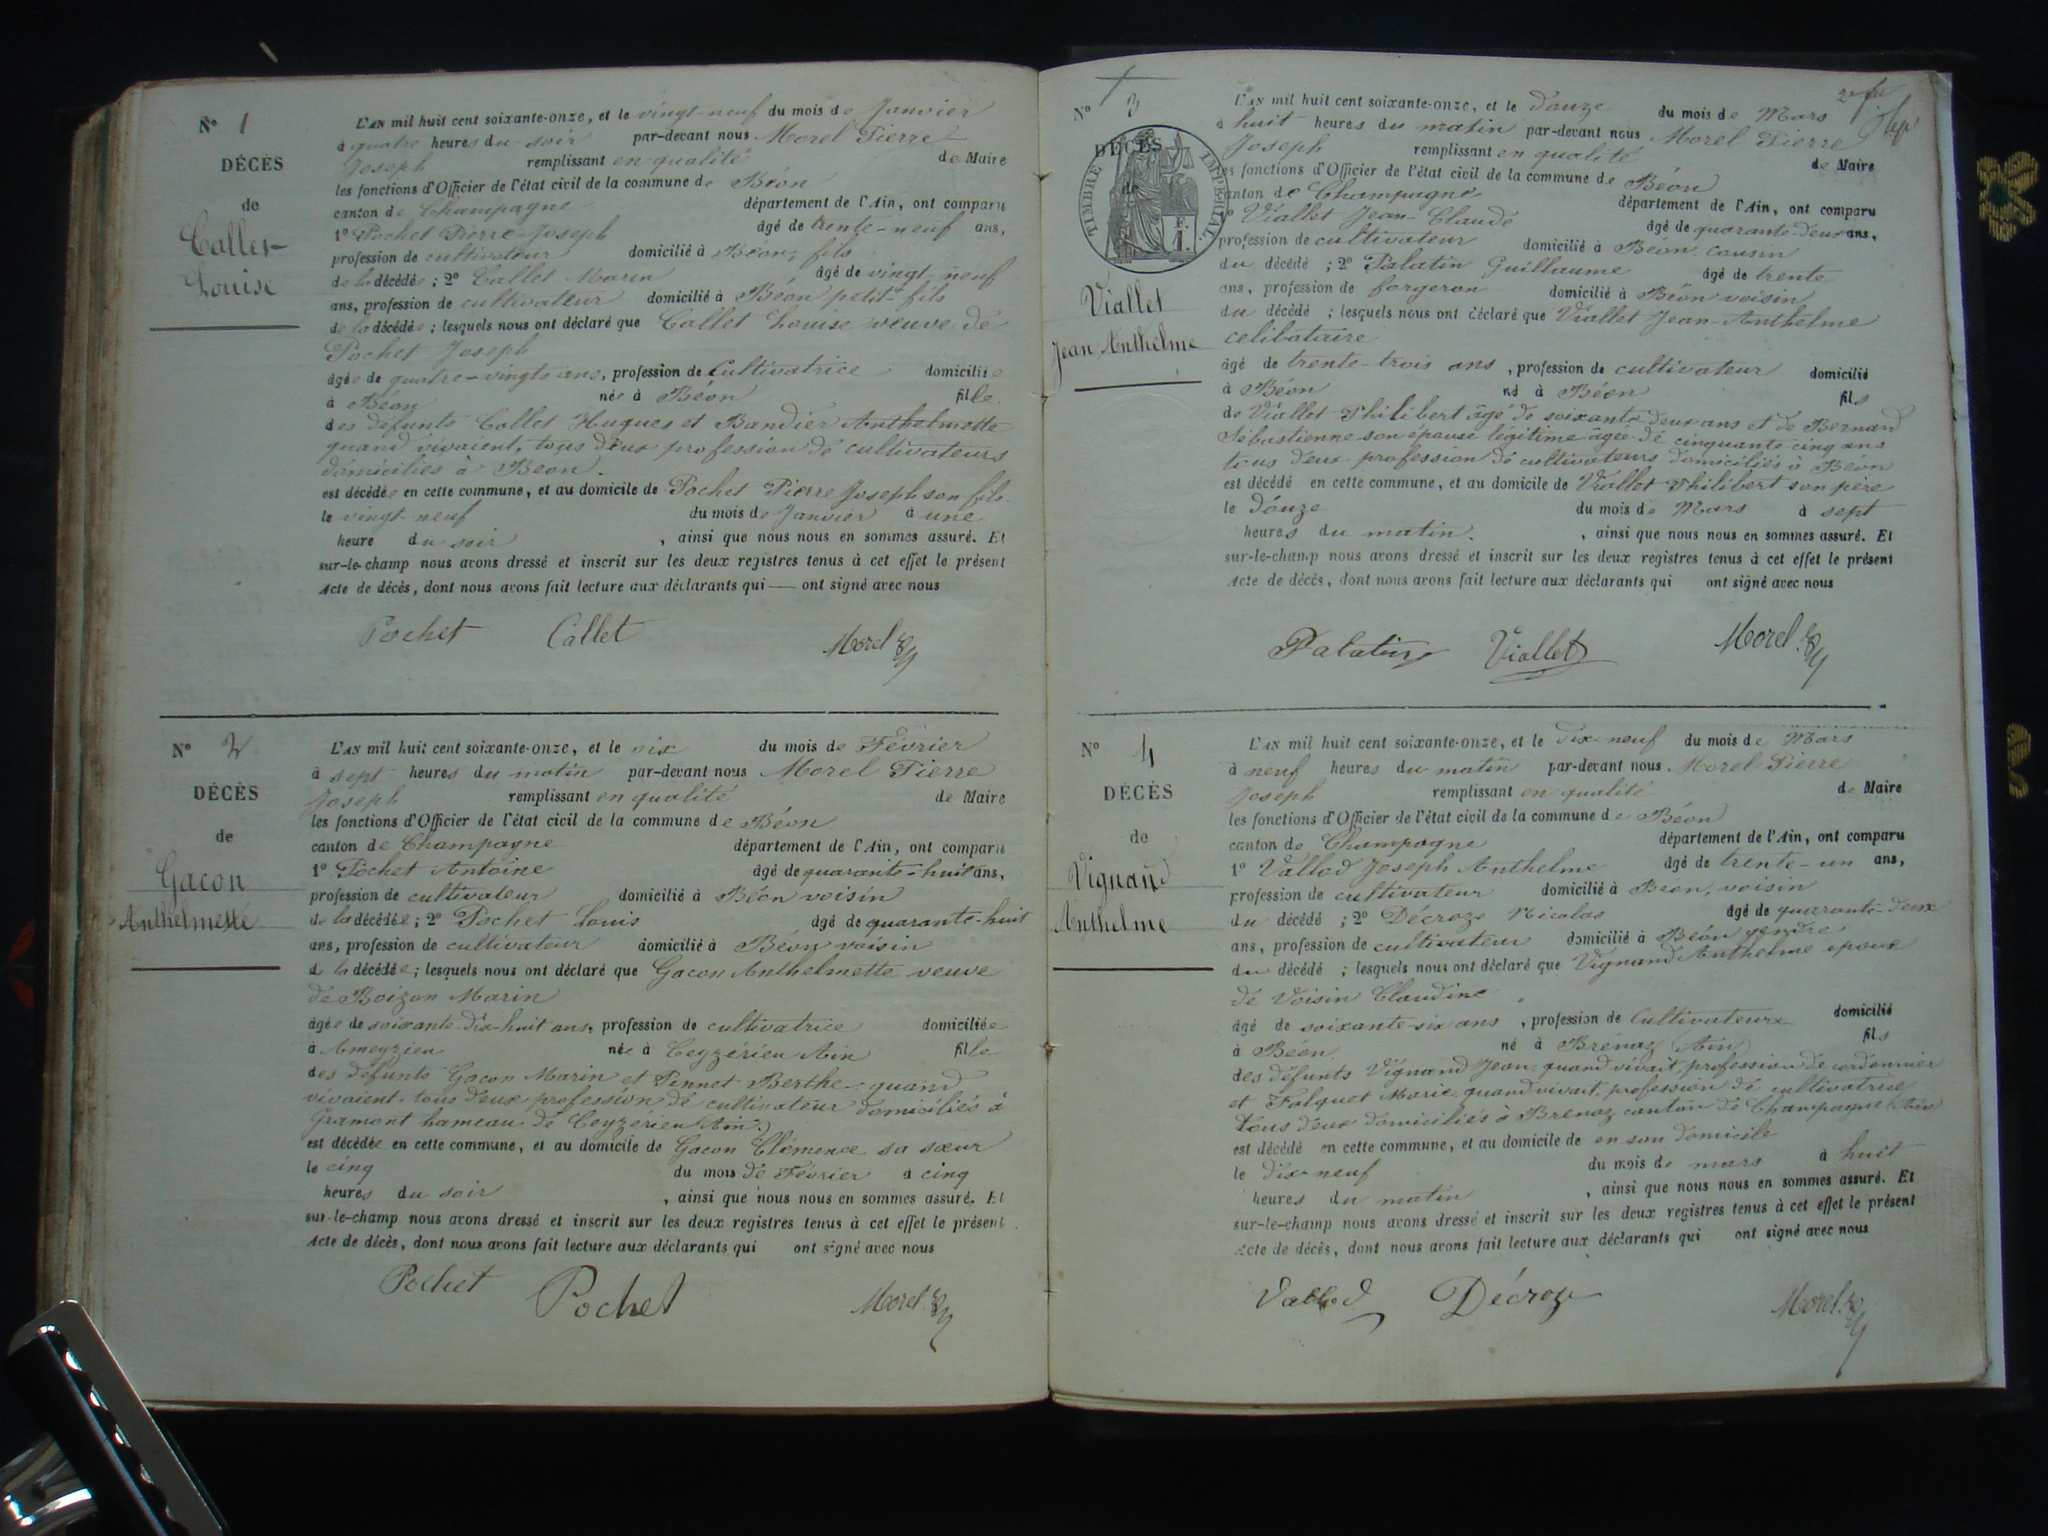 N° 1
DÉCÈS
de
Callet
Louise
L'AN mil huit cent soixante-onze, et le vingt-neuf du mois de Janvier
à quatre heures du soir par-devant nous Morel Pierre
Joseph remplissant en qualité de Maire
les fonctions d'Officier de l'état civil de la commune de Béon
canton de Champagne département de l'Ain, ont comparu
1° Pochet Pierre-Joseph âgé de trente-neuf ans,
profession de cultivateur domicilié à Béon, fils
de la décédée ; 2° Callet Marin âgé de vingt-neuf
ans, profession de cultivateur domicilié à Béon petit-fils
de la décédée ; lesquels nous ont déclaré que Callet Louise veuve de
Pochet Joseph
âgée de quatre-vingts ans, profession de Cultivatrice domiciliée
à Béon née à Béon fille
des défunts Callet Hugues et Bandier Anthelmette
quand vivaient, tous deux profession de cultivateurs
domiciliés à Béon.
est décédée en cette commune, et au domicile de Pochet Pierre Joseph son fils
le vingt-neuf du mois de Janvier à une
heure du soir , ainsi que nous nous en sommes assuré. Et
sur-le-champ nous avons dressé et inscrit sur les deux registres tenus à cet effet le présent
Acte de décès, dont nous avons fait lecture aux déclarants qui — ont signé avec nous
Pochet Callet Morel
N° 2
DÉCÈS
de
Gacon
Anthelmette
L'AN mil huit cent soixante-onze, et le six du mois de Février
à sept heures du matin par-devant nous Morel Pierre
Joseph remplissant en qualité de Maire
les fonctions d'Officier de l'état civil de la commune de Béon
canton de Champagne département de l'Ain, ont comparu
1° Pochet Antoine âgé de quarante-huit ans,
profession de cultivateur domicilié à Béon voisin
de la décédée ; 2° Pochet Louis âgé de quarante-huit
ans, profession de cultivateur domicilié à Béon voisin
de la décédée ; lesquels nous ont déclaré que Gacon Anthelmette veuve
de Boizon Marin
âgée de soixante-dix-huit ans, profession de cultivatrice domiciliée
à Ameyzieu née à Ceyzérieu Ain fille
des défunts Gacon Marin et Pennet Berthe quand
vivaient tous deux profession de cultivateur domiciliés à
Gramont hameau de Ceyzérieu (Ain.)
est décédée en cette commune, et au domicile de Gacon Clémence sa sœur
le cinq du mois de Février à cinq
heures du soir , ainsi que nous nous en sommes assuré. Et
sur-le-champ nous avons dressé et inscrit sur les deux registres tenus à cet effet le présent
Acte de décès, dont nous avons fait lecture aux déclarants qui ont signé avec nous
Pochet Pochet Morel
N° 3
DÉCÈS
TIMBRE IMPÉRIAL
F.
1.
Viallet
Jean Anthelme
L'AN mil huit cent soixante-onze, et le douze du mois de Mars
à huit heures du matin par-devant nous Morel Pierre
Joseph remplissant en qualité de Maire
les fonctions d'Officier de l'état civil de la commune de Béon
canton de Champagne département de l'Ain, ont comparu
1° Viallet Jean-Claude âgé de quarante-deux ans,
profession de cultivateur domicilié à Béon cousin
du décédé ; 2° Palatin Guillaume âgé de trente
ans, profession de forgeron domicilié à Béon voisin
du décédé ; lesquels nous ont déclaré que Viallet Jean-Anthelme
celibataire
âgé de trente-trois ans , profession de cultivateur domicilié
à Béon né à Béon fils
de Viallet Philibert âgé de soixante deux ans et de Bernard
Sébastienne son épouse légitime âgée de cinquante cinq ans
tous deux profession de cultivateurs domiciliés à Béon
est décédé en cette commune, et au domicile de Viallet Philibert son père
le douze du mois de Mars à sept
heures du matin. , ainsi que nous nous en sommes assuré. Et
sur-le-champ nous avons dressé et inscrit sur les deux registres tenus à cet effet le présent
Acte de décès, dont nous avons fait lecture aux déclarants qui ont signé avec nous
Palatin Viallet Morel
N° 4
DÉCÈS
de
Vignand
Anthelme
L'AN mil huit cent soixante-onze, et le dix-neuf du mois de Mars
à neuf heures du matin par-devant nous Morel Pierre
Joseph remplissant en qualité de Maire
les fonctions d'Officier de l'état civil de la commune de Béon
canton de Champagne département de l'Ain, ont comparu
1° Vallod Joseph Anthelme âgé de trente-un ans,
profession de cultivateur domicilié à Béon, voisin
du décédé ; 2° Décroze Nicolas âgé de quarante-deux
ans, profession de cultivateur domicilié à Béon gendre
du décédé ; lesquels nous ont déclaré que Vignand Anthelme époux
de Voisin Claudine
âgé de soixante-six ans , profession de Cultivateur domicilié
à Béon né à Brenaz (Ain) fils
des défunts Vignand Jean quand vivait, profession de cordonnier
et Falquet Marie, quand vivait, profession de cultivatrice
tous deux domiciliés à Brenaz canton de Champagne (Ain)
est décédé en cette commune, et au domicile de en son domicile
le dix-neuf du mois de mars à huit
heures du matin , ainsi que nous nous en sommes assuré. Et
sur-le-champ nous avons dressé et inscrit sur les deux registres tenus à cet effet le présent
Acte de décès, dont nous avons fait lecture aux déclarants qui ont signé avec nous
Vallod Décroze Morel